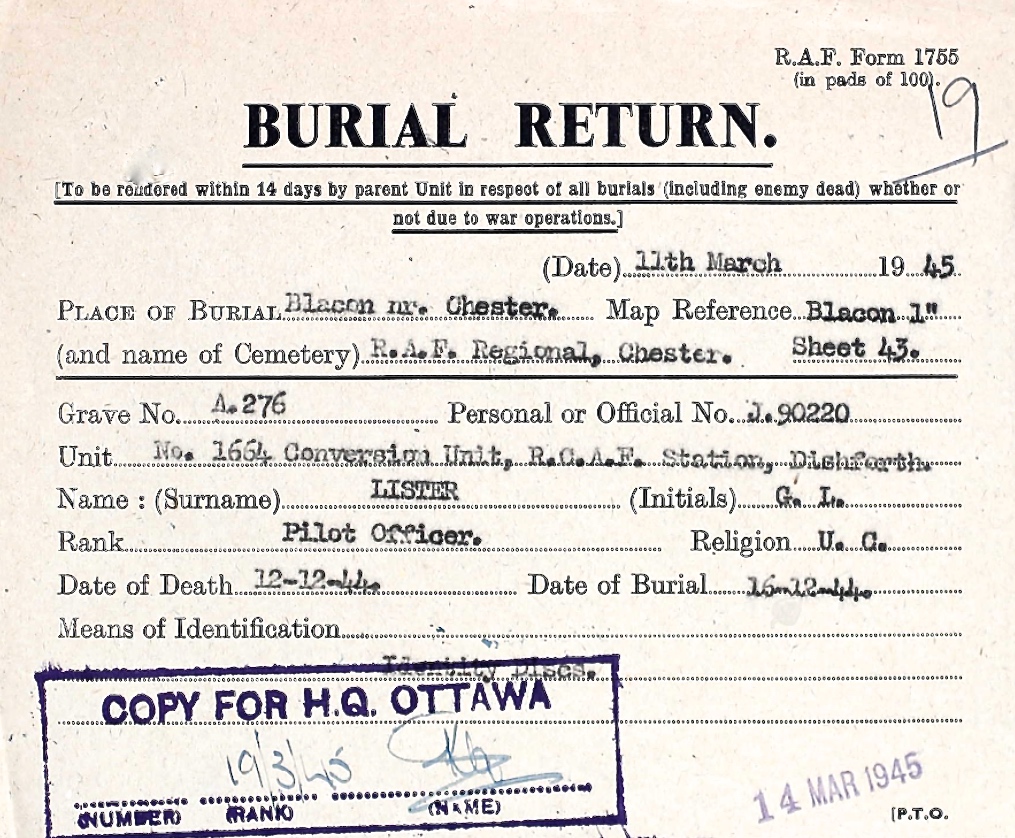 R.A.F. Form 1755
(in pads of 100).
19
BURIAL RETURN.
[To be rendered within 14 days by parent Unit in respect of all burials (including enemy dead) whether or
not due to war operations.]
(Date) 11th March 19 45.
PLACE OF BURIAL Blacon nr. Chester. Map Reference Blacon 1"
(and name of Cemetery) R.A.F. Regional, Chester. Sheet 43.
Grave No. A.276 Personal or Official No. J.90220
Unit No. 1664 Conversion Unit, R.C.A.F. Station, Dishforth.
Name : (Surname) LISTER (Initials) G. L.
Rank Pilot Officer. Religion U. C.
Date of Death 12-12-44. Date of Burial 16-12-44.
Means of Identification
Identity Discs.
COPY FOR H.Q. OTTAWA
19/3/45
(NUMBER) (RANK) (NAME)
14 MAR 1945
[P.T.O.